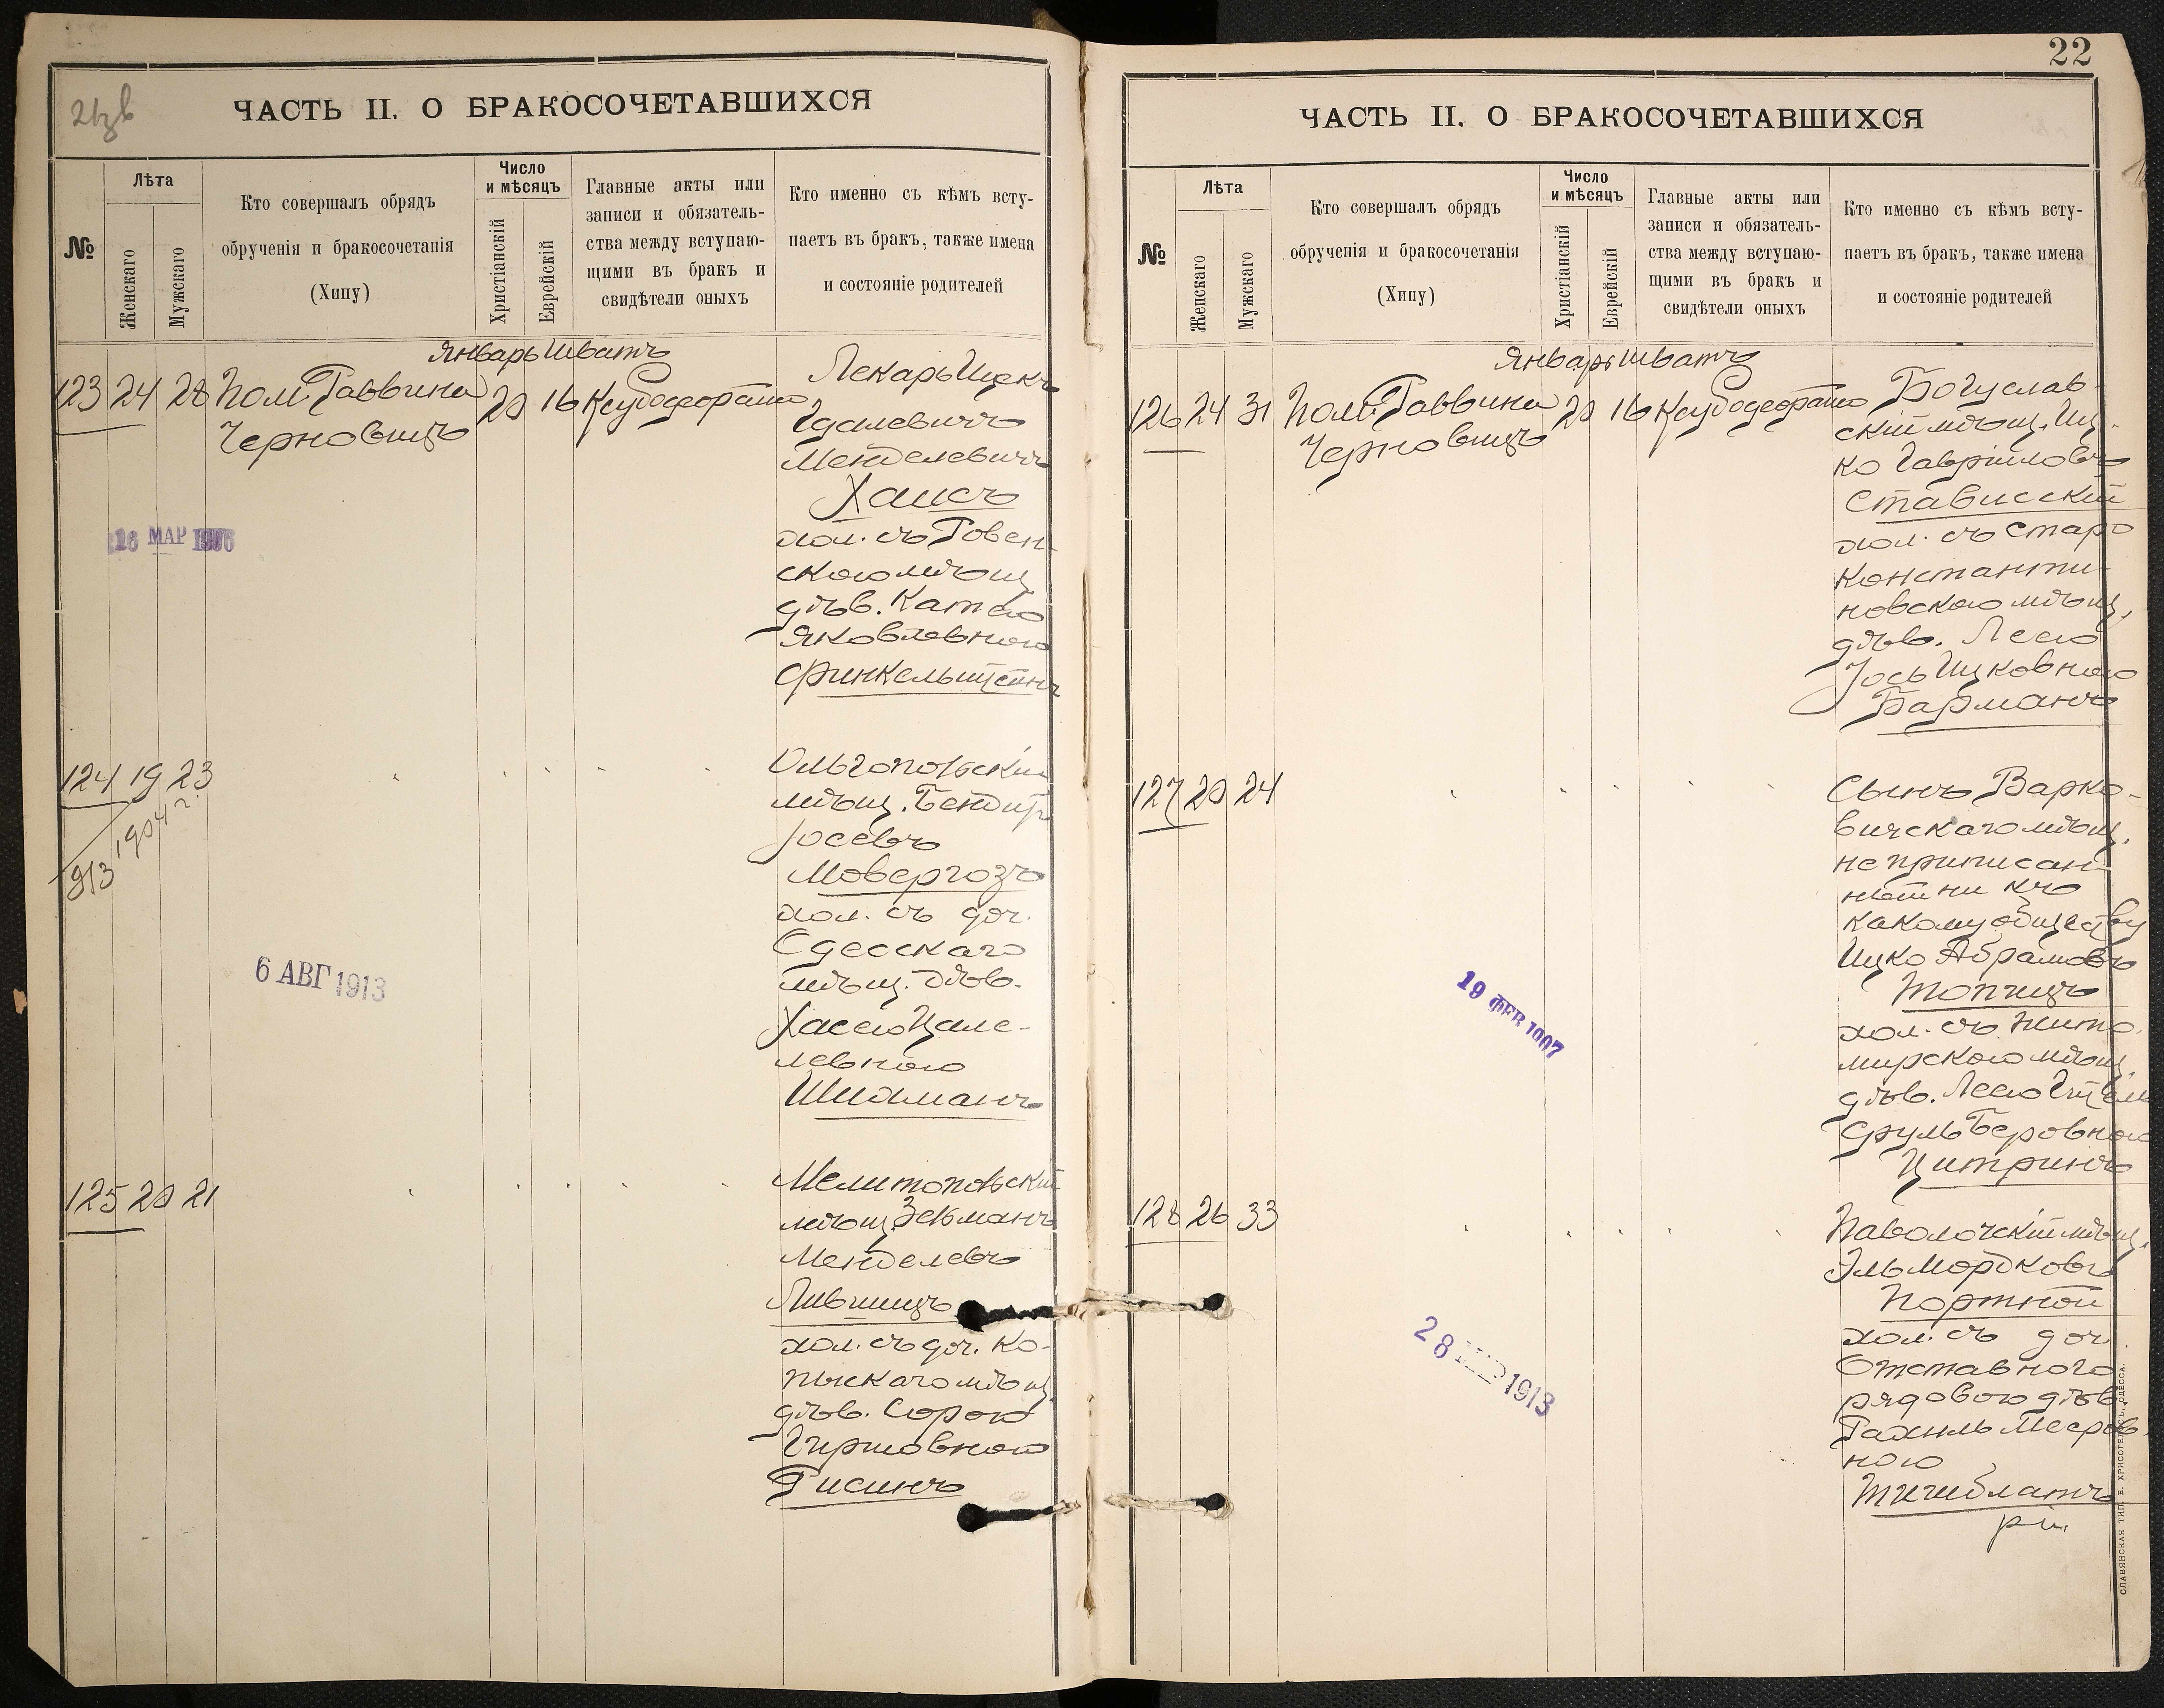 21 зв
ЧАСТЬ II. О БРАКОСОЧЕТАВШИХСЯ
№
Лѣта
Женскаго
Мужскаго
Кто совершалъ обрядъ
обрученія и бракосочетанія
(Хипу)
Число
и мѣсяцъ
Христіанскій
Еврейскій
Главные акты или
записи и обязатель-
ства между вступаю-
щими въ бракъ и
свидѣтели оныхъ
Кто именно съ кѣмъ всту-
паетъ въ бракъ, также имена
и состояніе родителей
Январь Шватъ
123 24 28 Пом. Раввина 20 16
Черновицъ
Лекарь Ицекъ
Гдалевичъ
Менделевичъ
Хаисъ
хол. съ Ровен-
скою мѣщ.
дѣв.
Яковлевною
Финкельштейнъ
26 МАР 1906
124 19 23
1904 г.
913
6 АВГ 1913
Ольгопольскій
мѣщ.
Іосевъ
Мовергозъ
хол. съ доч.
Одесскаго
мѣщ. дѣв.
Хасею Цале-
левною
Шихманъ
125 20 21
Мелитопольскій
мѣщ. Зельманъ
Менделевъ
Лившицъ
хол. съ доч. Ко-
пыскаго мѣщ.
дѣв. Сорою
Гиршовною
Рисинъ
22
ЧАСТЬ II. О БРАКОСОЧЕТАВШИХСЯ
№
Лѣта
Женскаго
Мужскаго
Кто совершалъ обрядъ
обрученія и бракосочетанія
(Хипу)
Число
и мѣсяцъ
Христіанскій
Еврейскій
Главные акты или
записи и обязатель-
ства между вступаю-
щими въ бракъ и
свидѣтели оныхъ
Кто именно съ кѣмъ всту-
паетъ въ бракъ, также имена
и состояніе родителей
Январь Шватъ
126 24 31 Пом. Раввина 20 16
Черновицъ
Богуслав-
скій мѣщ. Иц-
ко Гавриловъ
Стависскій
хол. съ Старо
Константи-
новскою мѣщ.
дѣв. Леею
Іось Ицковною
Барманъ
127 20 24
19 ФЕВ 1907
Сынъ Варко-
вичскаго мѣщ.
не приписан-
ный ни къ
какому обществу
Ицко Абрамовъ
Топчицъ
хол. съ Жито-
мирскою мѣщ.
дѣв. Леею
Сруль Беровною
Цитринъ
128 26 33
28 МАР 1913
Паволочскій мѣщ.
Эль Мордковъ
Портной
хол. съ доч.
Отставного
рядового дѣв.
Рахиль Мееров-
ною
СЛАВЯНСКАЯ ТИП. Е. ХРИСОГЕЛОСЪ, ОДЕССА.